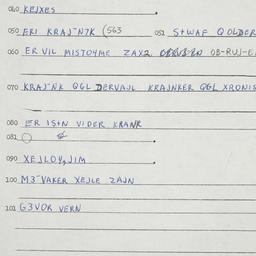 040 KEJXES
050 EKI KRAJ~N7K (563 052 S+WAF QOLDER
060 ER VIL MISTOYME ZAX2 OB-RUJ-E
070 KRAJ~NK QGL DERVAJL KRAJNKER QGL XRONIS
080 ER IS+N VIDER KRANR
081
090 XEJLOY, JIM
100 M3~VAKER XEJLE ZAJN
101 G3VOR VERN